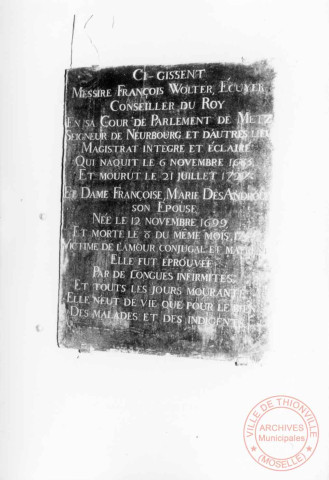 CI-GISSENT
MESSIRE FRANÇOIS WOLTER, ECUYER
CONSEILLER DU ROY
EN SA COUR DE PARLEMENT DE METZ
SEIGNEUR DE NEURBOURG ET DAUTRES LIEU
MAGISTRAT INTEGRE ET ECLAIRÉ
QUI NAQUIT LE 6 NOVEMBRE
ET MOURUT LE 21 JUILLET
ET DAME FRANÇOISE MARIE DES ANDROU
SON EPOUSE
NÉE LE 12 NOVEMBRE 1699
ET MORTE LE 8 DU MEME MOIS,
VICTIME DE L'AMOUR CONJUGAL ET
ELLE FUT EPROUVÉE
PAR DE LONGUES INFIRMITES
ET TOUTS LES JOURS MOURANT
ELLE NEUT DE VIE QUE POUR LE
DES MALADES ET DES INDIGENTS
VILLE DE THIONVILLE
ARCHIVES
Municipales
(MOSELLE)